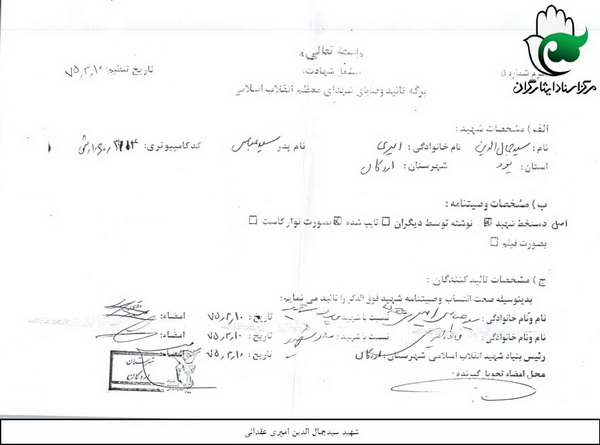 باسمه تعالی
مشعل شهادت
فرم شماره ۱
تاریخ تنظیم: ۷۵,۲,۱۰
مرکز اسناد ایثارگران
برگه تائید وصایای شهدای معظم انقلاب اسلامی
الف) مشخصات شهید:
نام: سید جمال الدین نام خانوادگی: امیری نام پدر سید عباس کد کامپیوتری:
استان: یزد شهرستان: اردکان
ب) مشخصات وصیتنامه:
اصل دستخط شهید نوشته توسط دیگران تایپ شده بصورت نوار کاست
بصورت فیلم
ج) مشخصات تائید کنندگان:
بدینوسیله صحت انتساب وصیتنامه شهید فوق الذکر را تائید می نمایم:
نام ونام خانوادگی: سید عباس امیری نسبت با شهید: پدر شهید تاریخ: ۷۵,۲,۱۰ امضاء:
نام ونام خانوادگی: نسبت با شهید: مادر شهید تاریخ: ۷۵,۲,۱۰ امضاء:
رئیس بنیاد شهید انقلاب اسلامی شهرستان: اردکان تاریخ: ۷۵,۲,۱۰ امضاء:
محل امضاء تحویل گیرنده:
شهرستان اردکان
شهید سیدجمال الدین امیری عقدائی